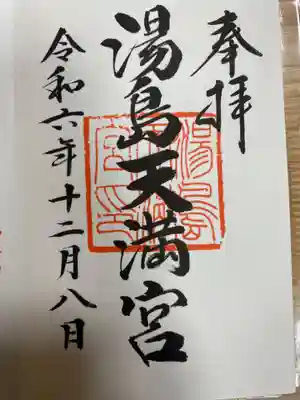 奉拝
湯島天満宮
令和六年十二月八日